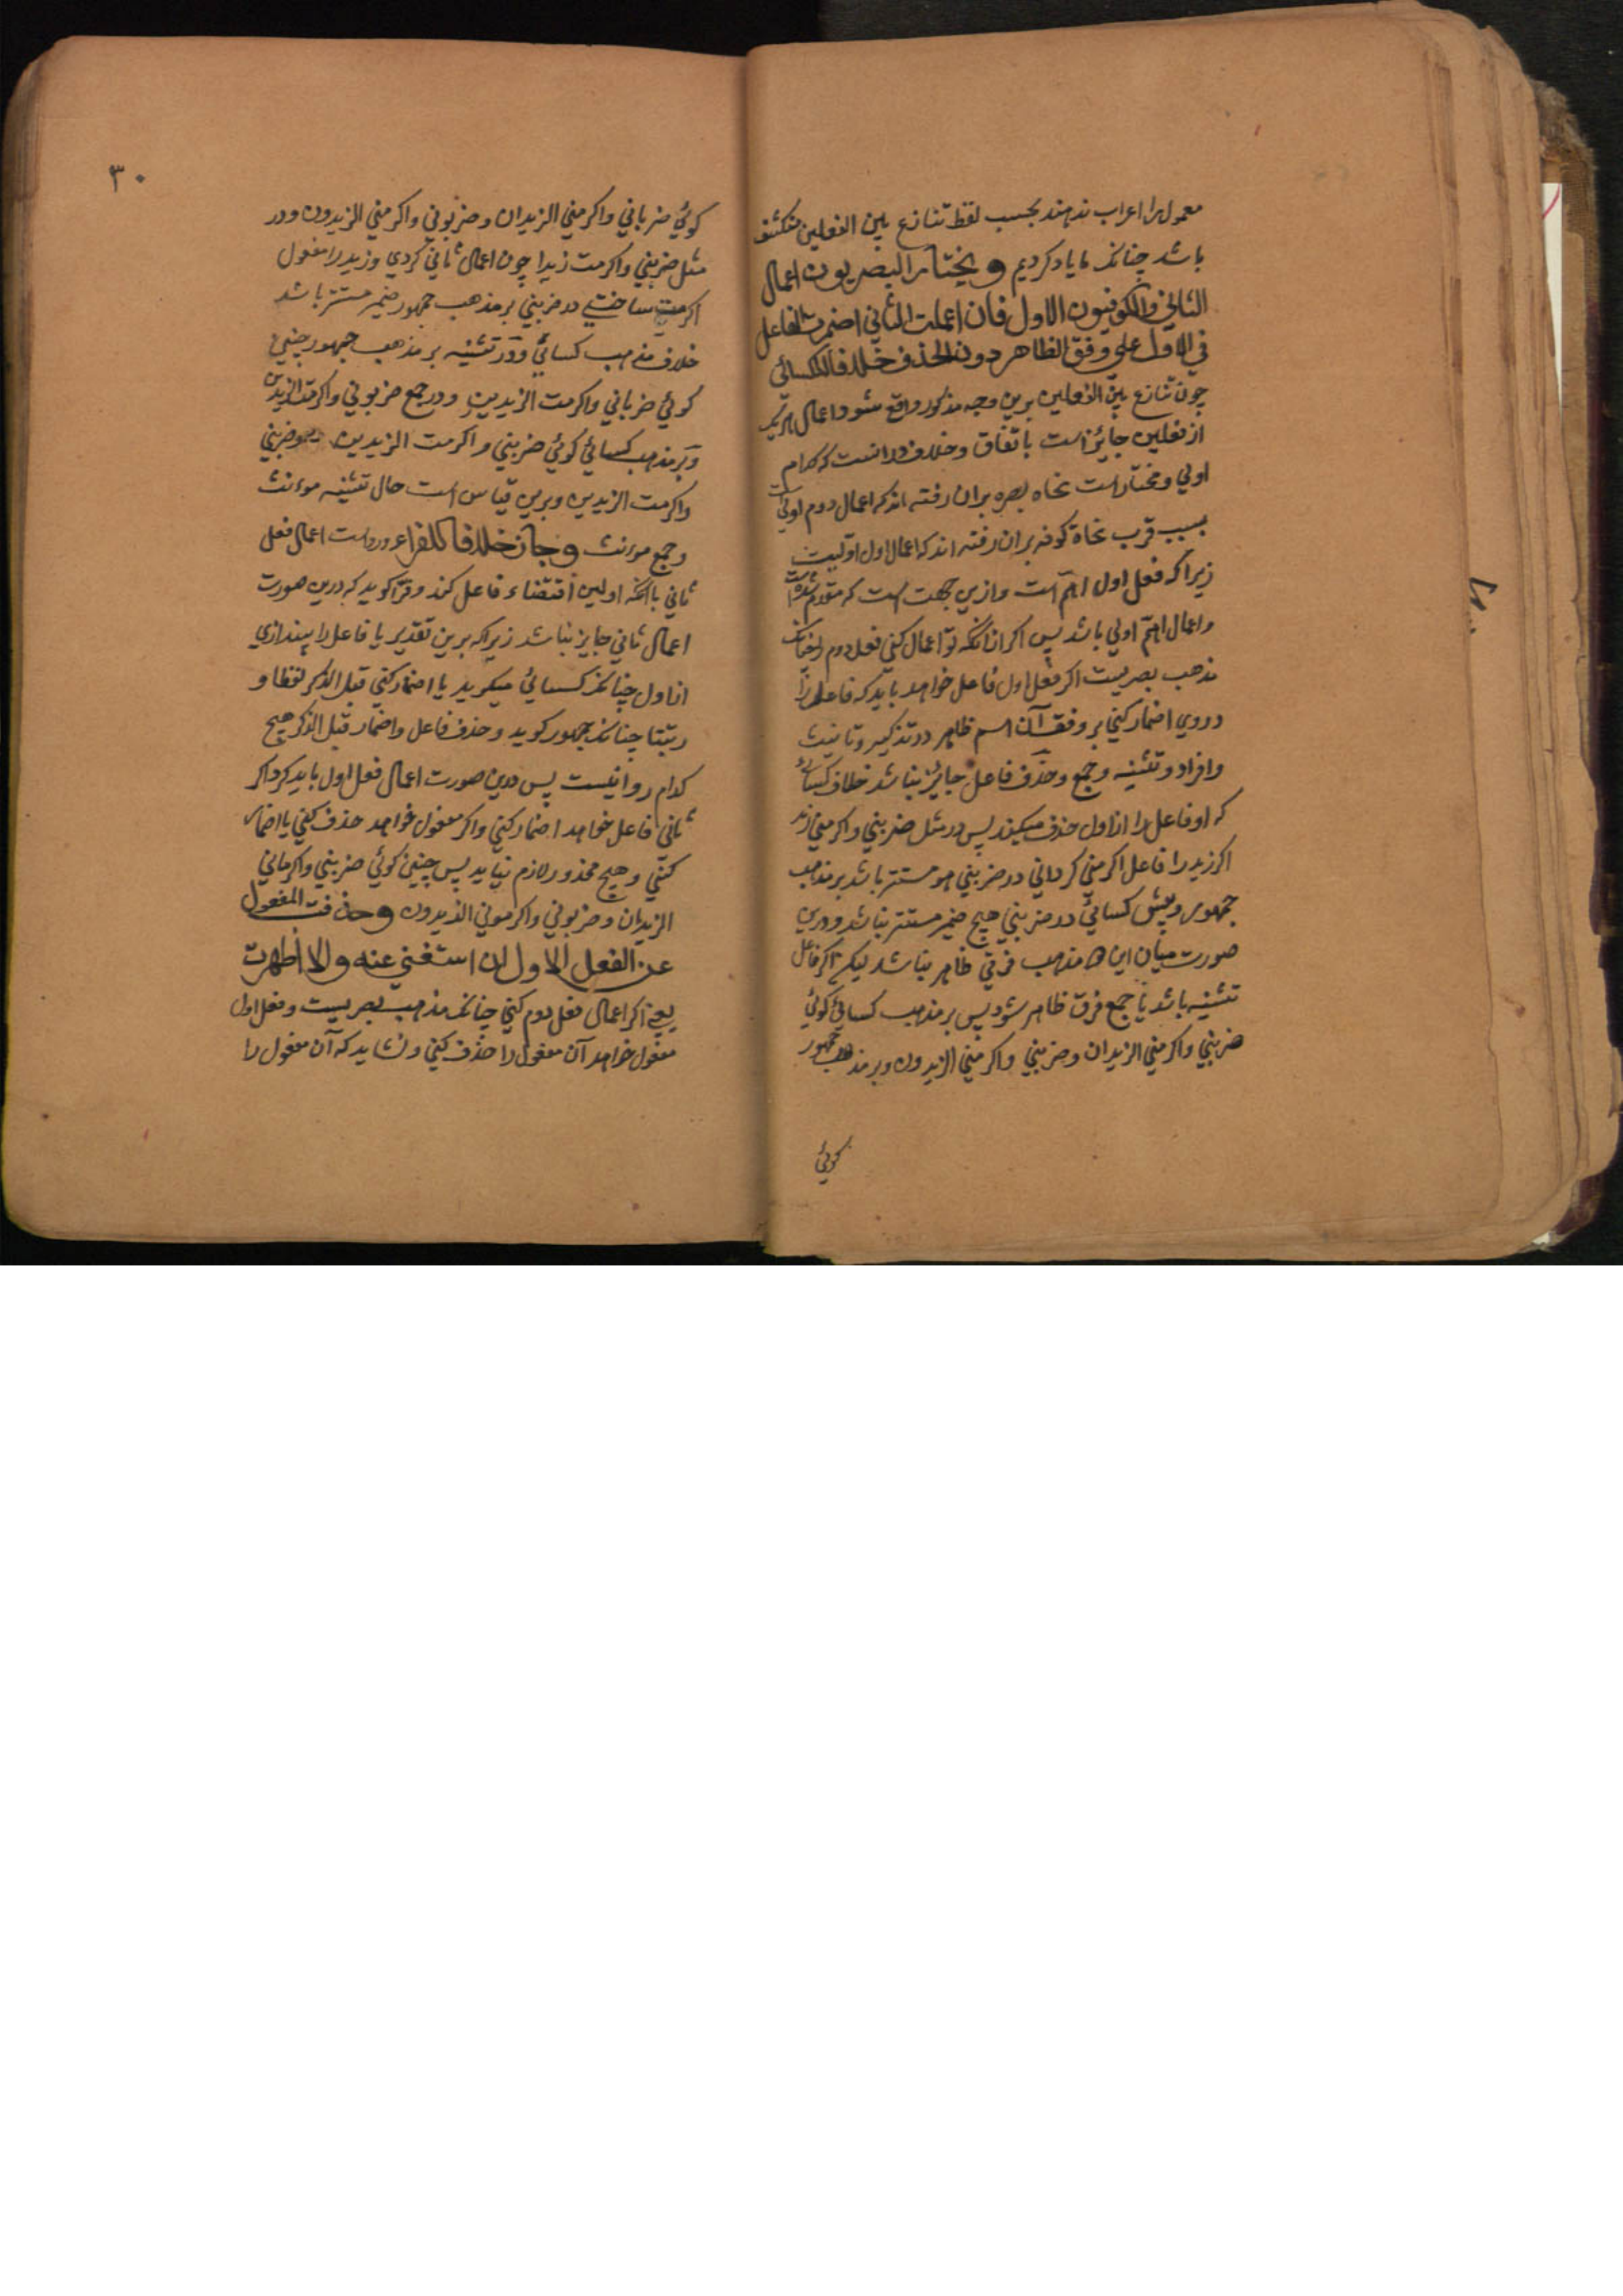 معمول را اعراب ندهند بحسب لفظ تنازع بین الفعلین منکشف
باشد چنانکه ما یاد کردیم و یختار البصریون اعمال
الثانی والکوفیون الاول فان اعملت الثانی اضمرت الفاعل
فی الاول علی وفق الظاهر دون الحذف خلافا للکسائی
چون تنازع بین الفعلین برین وجه مذکور واقع شود اعمال هر یک
از فعلین جایز است باتفاق و خلاف در انست که کدام
اولی و مختار است نحاه بصره بران رفته اند که اعمال دوم اولی است
بسبب قرب نحاة کوفه بران رفته اند که اعمال اول اولیست
زیرا که فعل اول اهم است و ازین جهت است که مقدم شده است
و اعمال اهم اولی باشد پس اکر انانکه تو اعمال کنی فعل دوم را چنانکه
مذهب بصریست اکر فعل اول فاعل خواهد باید که فاعل را
در وی اضمار کنی بر وفق آن اسم ظاهر در تذکیر و تانیث
و افراد و تثنیه و جمع و حذف فاعل جایز نباشد خلاف کسائی
که او فاعل را از اول حذف میکند پس در مثل ضربنی و اکرمنی زید
اکر زید را فاعل اکرمنی کردانی در ضربنی هو مستتر باشد بر مذهب
جمهور و پیش کسائی در ضربنی هیچ ضمیر مستتر نباشد و درین
صورت میان این ها مذهب فرقی ظاهر نباشد لیکن اکر فاعل
تثنیه باشد یا جمع فرق ظاهر شود پس بر مذهب کسائی کوئی
ضربنی و اکرمنی الزیدان و ضربنی و اکرمنی الزیدون و بر مذهب جمهور
کوئی
۳۰
کوئی ضربانی و اکرمنی الزیدان و ضربونی و اکرمنی الزیدون و در
مثل ضربنی و اکرمت زیدا چون اعمال ثانی کردی و زید را مفعول
اکرمت ساختی در ضربنی بر مذهب جمهور ضمیر مستتر باشد
خلاف مذهب کسائی و در تثنیه بر مذهب جمهور چنین
کوئی ضربانی و اکرمت الزیدین و در جمع ضربونی و اکرمت الزیدین
و بر مذهب کسائی کوئی ضربنی و اکرمت الزیدین و ضربنی
و اکرمت الزیدین و برین قیاس است حال تثنیه مؤنث
و جمع مؤنث و جاز خلافا للفراء و رواست اعمال فعل
ثانی با انکه اولین اقتضاء فاعل کند و فرا کوید که درین صورت
اعمال ثانی جایز نباشد زیرا که برین تقدیر یا فاعل را بیندازی
از اول چنانکه کسائی میکوید یا اضمار کنی قبل الذکر لفظا و
رتبتا چنانکه جمهور کوید و حذف فاعل و اضمار قبل الذکر هیچ
کدام روا نیست پس درین صورت اعمال فعل اول باید کرد اکر
ثانی فاعل خواهد اضمار کنی و اکر مفعول خواهد حذف کنی یا اضمار
کنی و هیچ محذور لازم نیاید پس چنین کوئی ضربنی و اکرمانی
الزیدان و ضربونی و اکرمونی الزیدون و حذفت المفعول
عن الفعل الاول ان استغنی عنه و الا اظهرت
یعنی اکر اعمال فعل دوم کنی چنانکه مذهب بصریست و فعل اول
مفعول خواهد آن مفعول را حذف کنی و نشاید که آن مفعول را